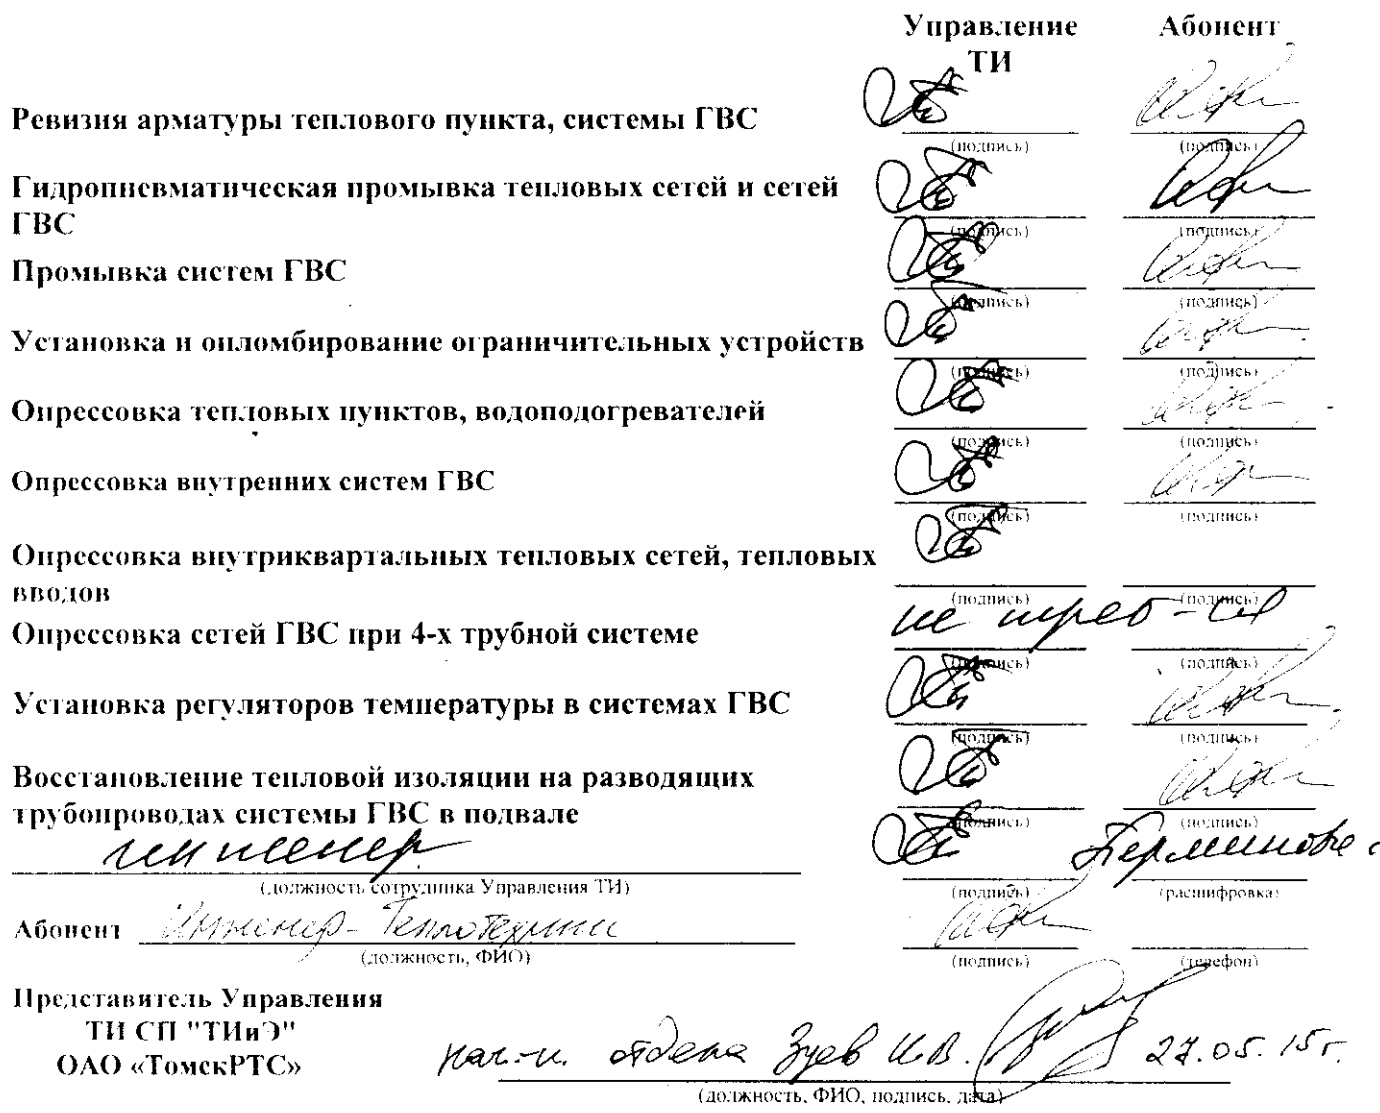 Управление Абонент
ТИ
Ревизия арматуры теплового пункта, системы ГВС
(подпись) (подпись)
Гидропневматическая промывка тепловых сетей и сетей
ГВС
(подпись) (подпись)
Промывка систем ГВС
(подпись) (подпись)
Установка и опломбирование ограничительных устройств
(подпись) (подпись)
Опрессовка тепловых пунктов, водоподогревателей
(подпись) (подпись)
Опрессовка внутренних систем ГВС
(подпись) (подпись)
Опрессовка внутриквартальных тепловых сетей, тепловых
вводов
(подпись) (подпись)
Опрессовка сетей ГВС при 4-х трубной системе не треб-ся
(подпись) (подпись)
Установка регуляторов температуры в системах ГВС
(подпись) (подпись)
Восстановление тепловой изоляции на разводящих
трубопроводах системы ГВС в подвале
(подпись) (подпись)
инженер Перминова
(должность сотрудника Управления ТИ) (подпись) (расшифровка)
Абонент Инженер-Теплотехник
(должность, ФИО) (подпись) (телефон)
Представитель Управления
ТИ СП "ТИиЭ"
ОАО «ТомскРТС» нач-к отдела Зуев И.В. 27.05.15г.
(должность, ФИО, подпись, дата)